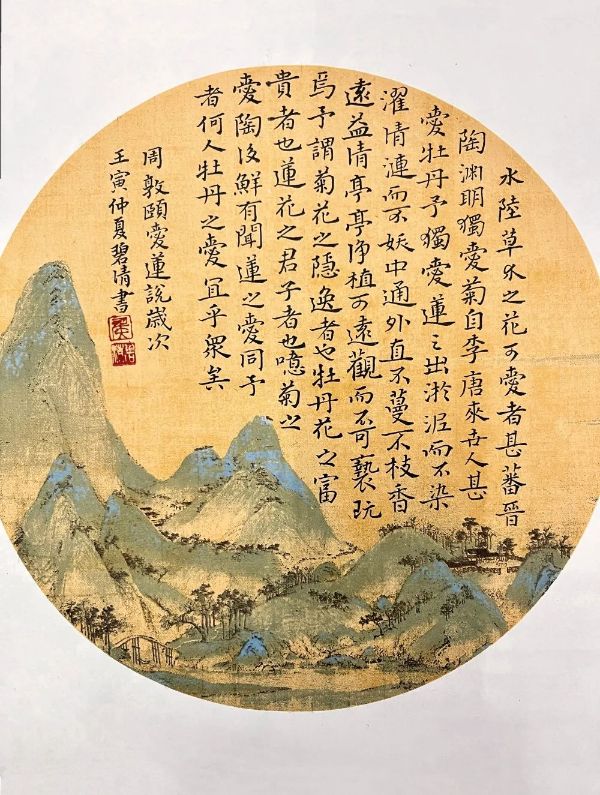 水陸草木之花可愛者甚蕃晉
陶渊明獨愛菊自李唐來世人甚
愛牡丹予獨愛蓮之出淤泥而不染
濯清漣而不妖中通外直不蔓不枝香
遠益清亭亭净植可遠觀而不可褻玩
焉予謂菊花之隱逸者也牡丹花之富
貴者也蓮花之君子者也噫菊之
愛陶後鮮有聞蓮之愛同予
者何人牡丹之愛宜乎眾矣
周敦頤愛蓮說歲次
壬寅仲夏碧清書